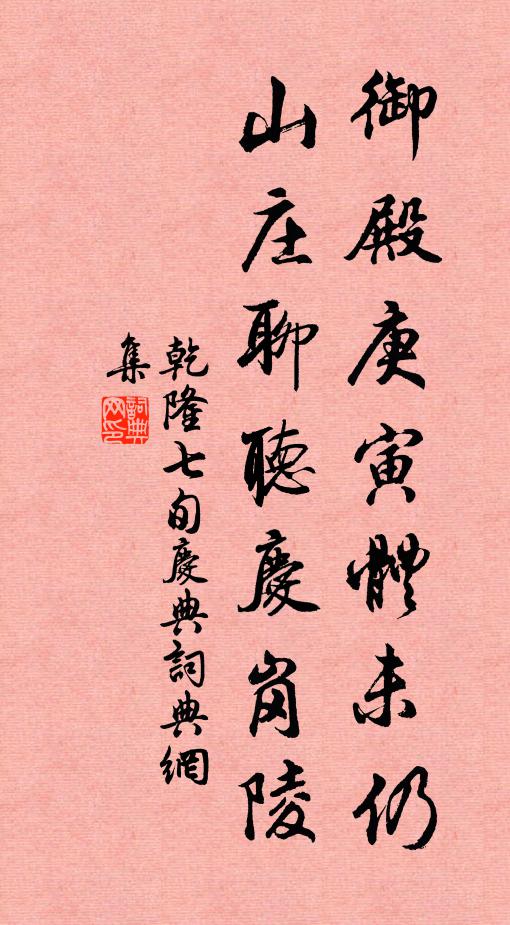 御殿庚寅體未仍
山庄聊聽慶岗陵
乾隆七旬慶典詞典網
集
詞典网印